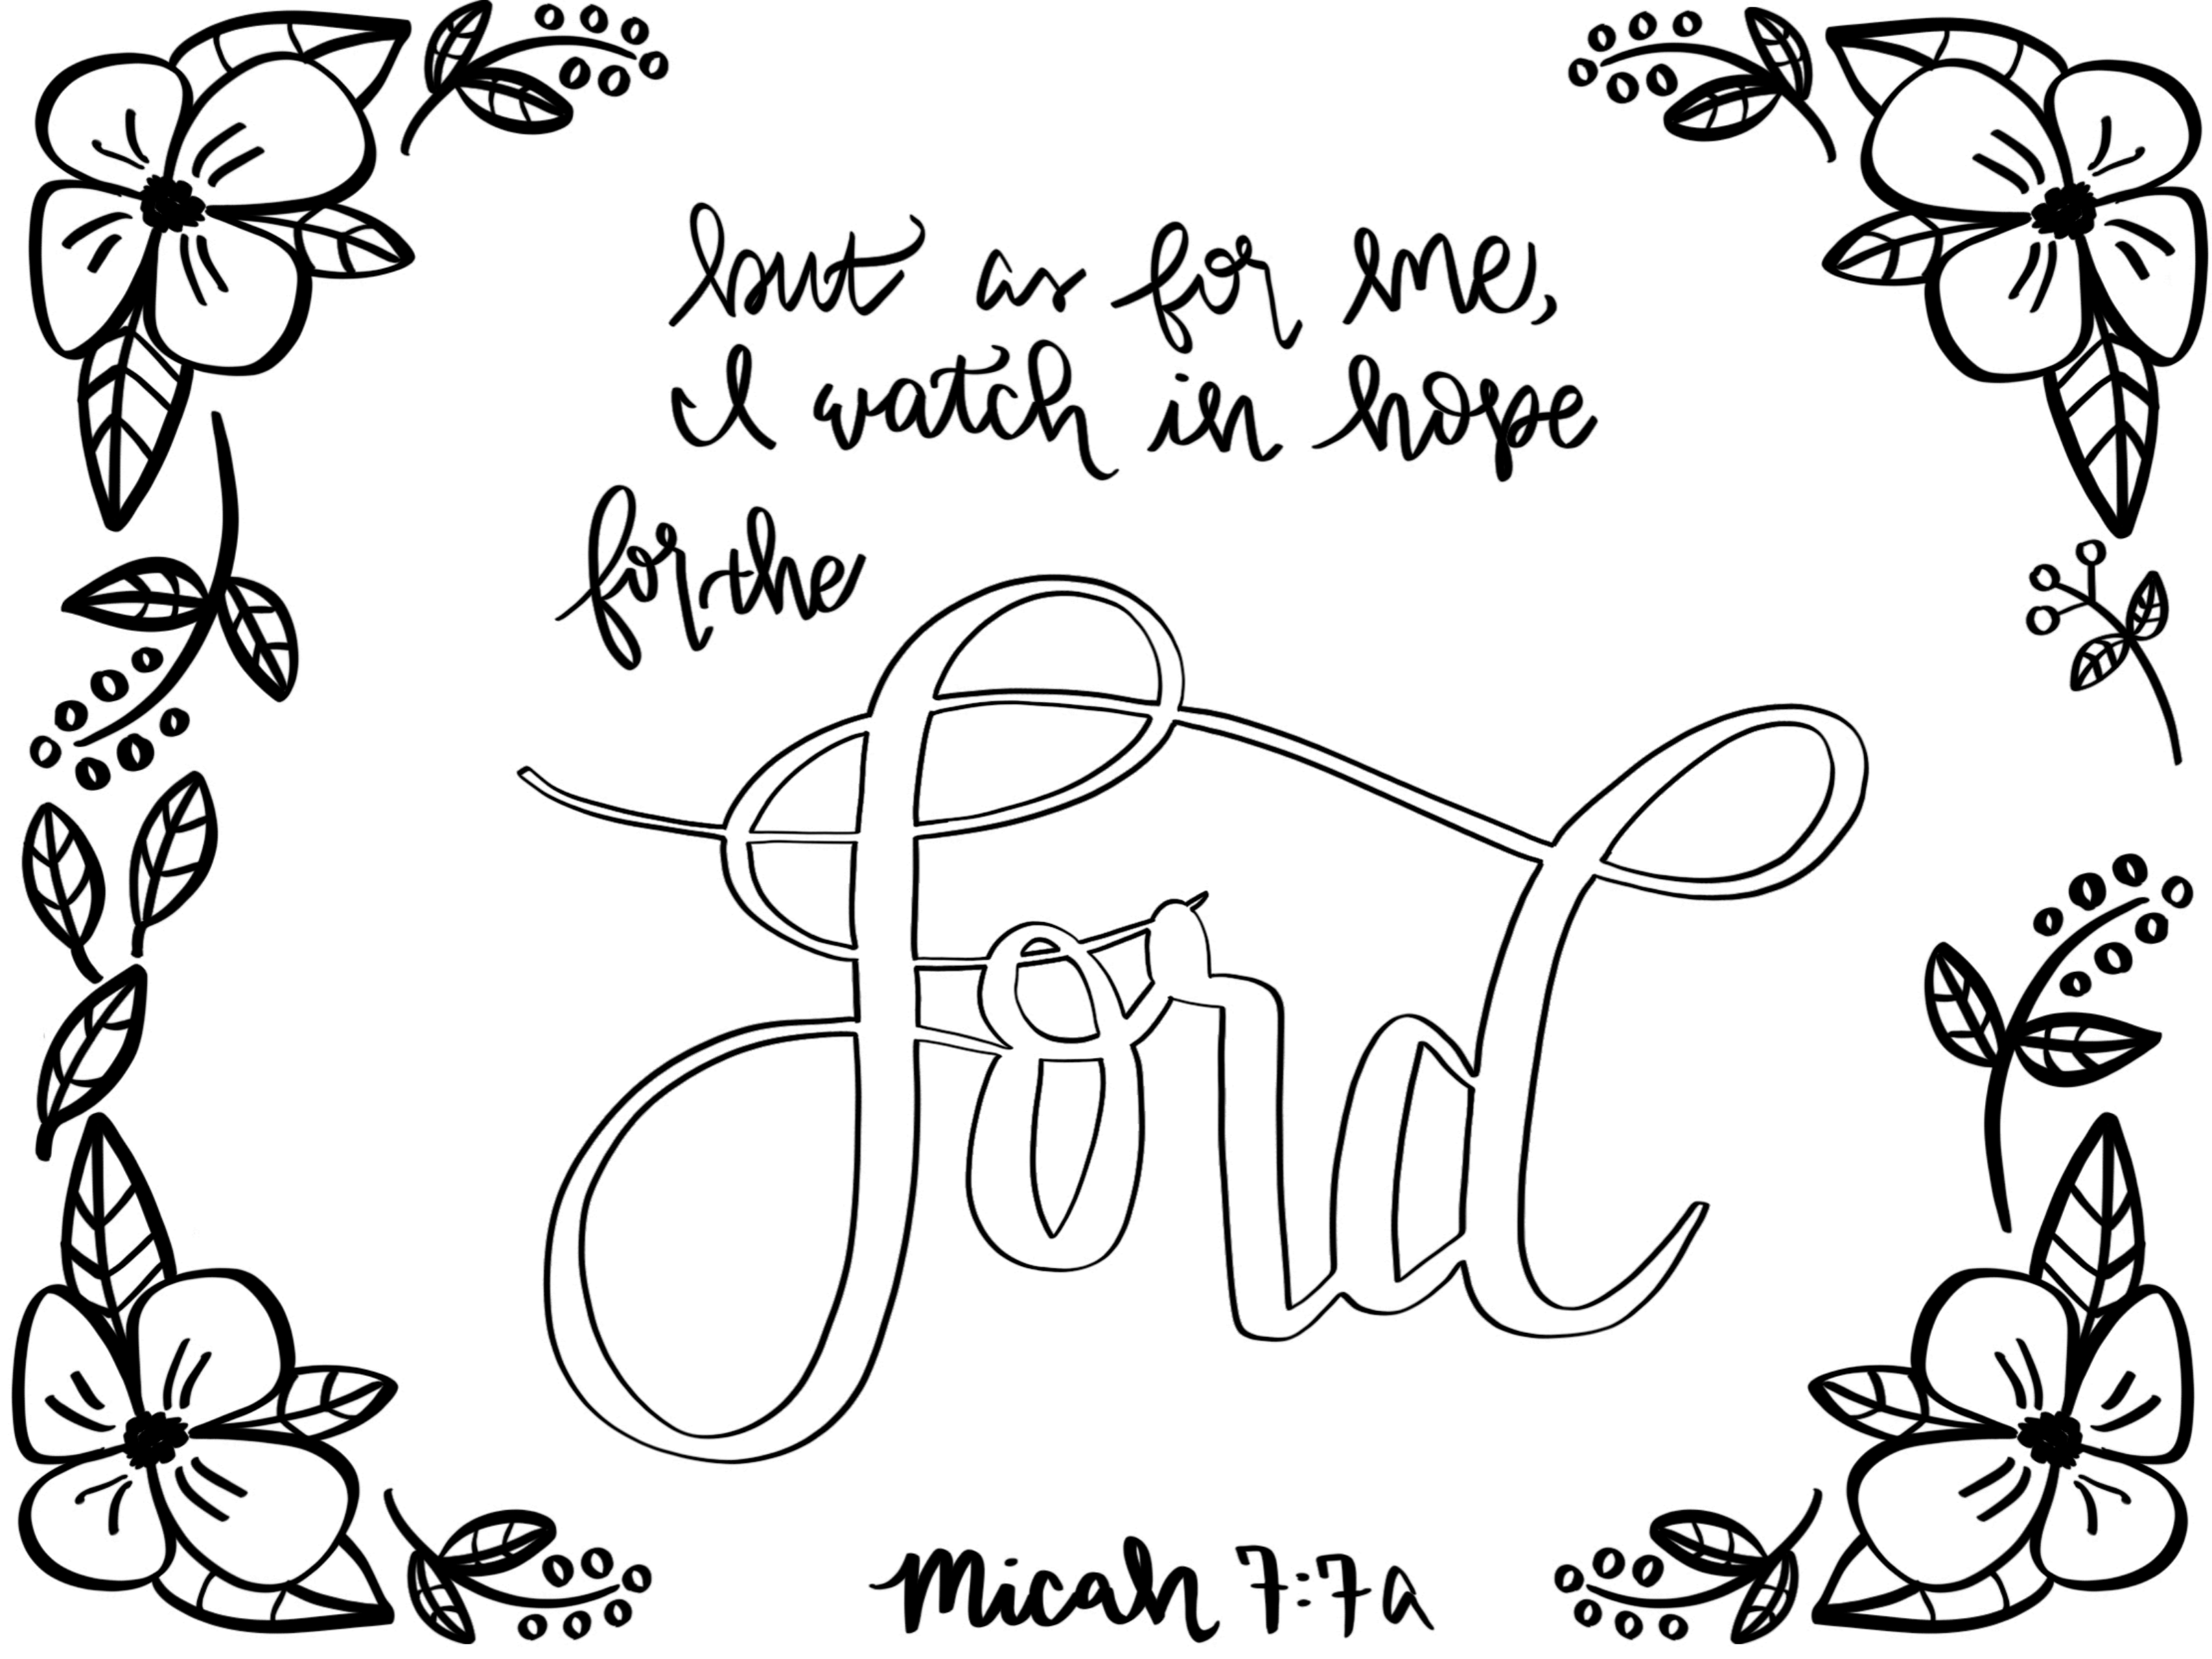 but as for me,
I watch in hope
for the
Lord
Micah 7:7a